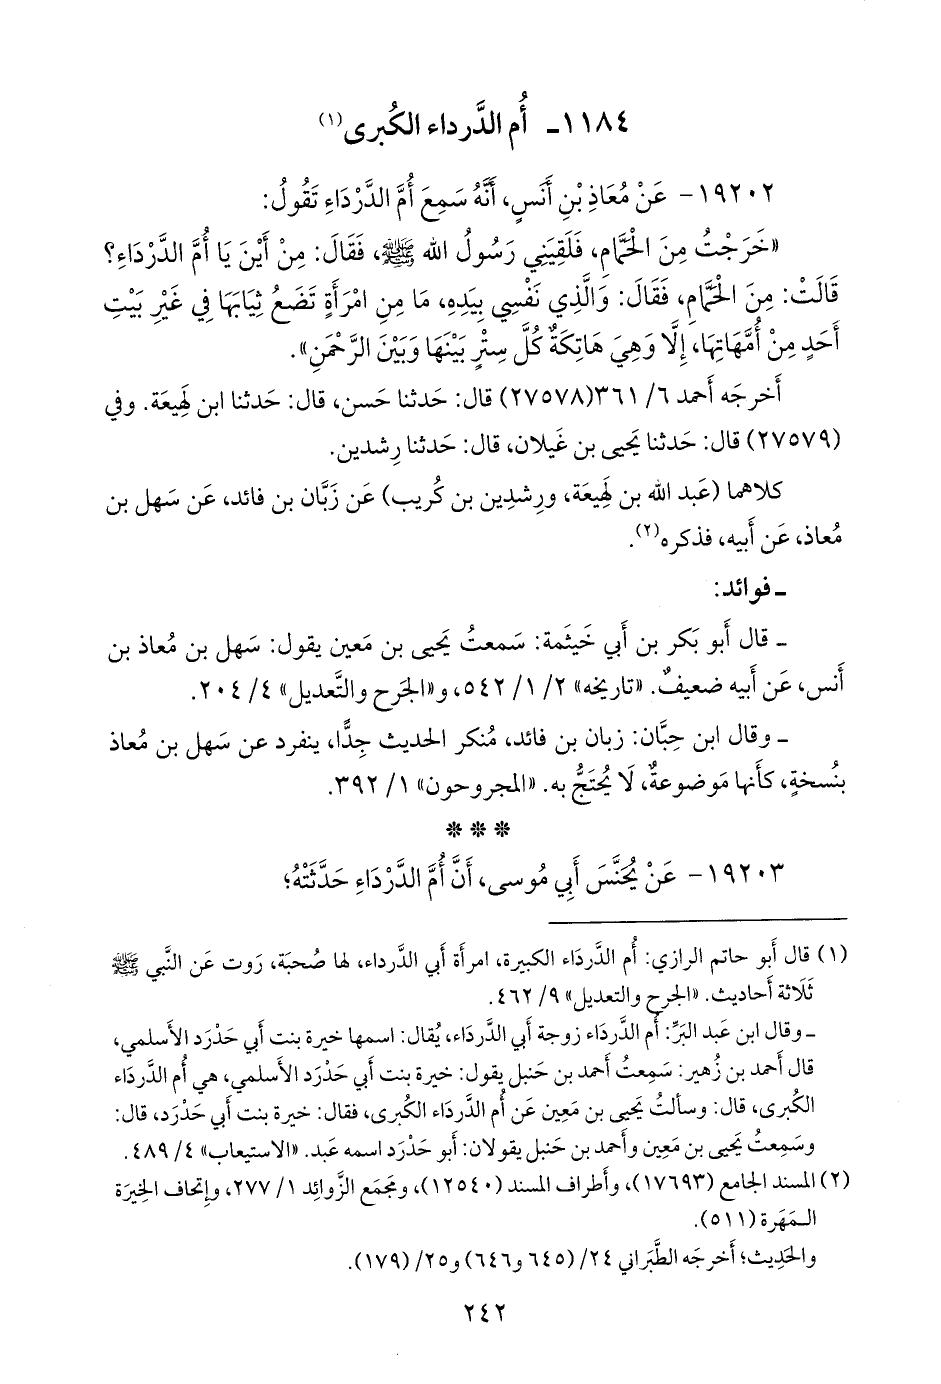 ١١٨٤ـ أُم الدَّرداء الكُبرى(١)
١٩٢٠٢- عَنْ مُعَاذِ بْنِ أَنَسٍ، أَنَّهُ سَمِعَ أُمَّ الدَّرْدَاءِ تَقُولُ:
«خَرَجْتُ مِنَ الْحَمَّامِ، فَلَقِيَنِي رَسُولُ الله ﷺ، فَقَالَ: مِنْ أَيْنَ يَا أُمَّ الدَّرْدَاءِ؟
قَالَتْ: مِنَ الْحَمَّامِ، فَقَالَ: وَالَّذِي نَفْسِي بِيَدِهِ، مَا مِنِ امْرَأَةٍ تَضَعُ ثِيَابَهَا فِي غَيْرِ بَيْتِ
أَحَدٍ مِنْ أُمَّهَاتِهَا، إِلَّا وَهِيَ هَاتِكَةٌ كُلَّ سِتْرٍ بَيْنَهَا وَبَيْنَ الرَّحْمَنِ».
أَخرجَه أَحمد ٦/ ٣٦١(٢٧٥٧٨) قال: حَدثنا حَسن، قال: حَدثنا ابن لَهِيعَة. وفي
(٢٧٥٧٩) قال: حَدثنا يَحيى بن غَيلان، قال: حَدثنا رِشدين.
كلاهما (عَبد الله بن لَهِيعَة، ورِشدِين بن كُريب) عَن زَبَّان بن فائد، عَن سَهل بن
مُعاذ، عَن أَبيه، فذكره(٢).
ـ فوائد:
ـ قال أَبو بَكر بن أَبي خَيثَمة: سَمعتُ يَحيى بن مَعين يقول: سَهل بن مُعاذ بن
أَنس، عَن أَبيه ضعيفٌ. «تاريخه» ٢/ ١/ ٥٤٢، و«الجَرح والتَّعديل» ٤/ ٢٠٤.
ـ وقال ابن حِبَّان: زبان بن فائد، مُنكر الحديث جِدًّا، ينفرد عن سَهل بن مُعاذ
بنُسخةٍ، كأَنها مَوضوعةٌ، لَا يُحتَجُّ به. «المجروحون» ١/ ٣٩٢.
* * *
١٩٢٠٣- عَنْ يُحَنَّسَ أَبِي مُوسى، أَنَّ أُمَّ الدَّرْدَاءِ حَدَّثَتْهُ؛
(١) قال أَبو حاتم الرازي: أُم الدَّردَاء الكبيرة، امرأَة أَبي الدَّرداء، لها صُحبَة، رَوت عَن النَّبي ﷺ
ثَلَاثة أَحاديث. «الجَرح والتعديل» ٩/ ٤٦٢.
ـ وقال ابن عَبد البَرِّ: أُم الدَّردَاء زوجة أَبي الدَّردَاء، يُقال: اسمها خيرة بنت أَبي حَدْرَد الأَسلمي،
قال أَحمد بن زُهير: سَمِعتُ أَحمد بن حَنبل يقول: خيرة بنت أَبي حَدْرَد الأَسلمي، هي أُم الدَّردَاء
الكُبرى، قال: وسأَلتُ يَحيى بن مَعِين عَن أُم الدَّرداء الكُبرى، فقال: خيرة بنت أَبي حَدْرَد، قال:
وسَمِعتُ يَحيى بن مَعِين وأَحمد بن حَنبل يقولان: أَبو حَدْرَد اسمه عَبد. «الاستيعاب» ٤/ ٤٨٩.
(٢) المسند الجامع (١٧٦٩٣)، وأَطراف المسند (١٢٥٤٠)، ومَجمَع الزَّوائِد ١/ ٢٧٧، وإِتحاف الخِيرَة
المَهَرة (٥١١).
والحَدِيث؛ أَخرجَه الطَّبَراني ٢٤/ (٦٤٥ و٦٤٦) و٢٥/ (١٧٩).
٢٤٢